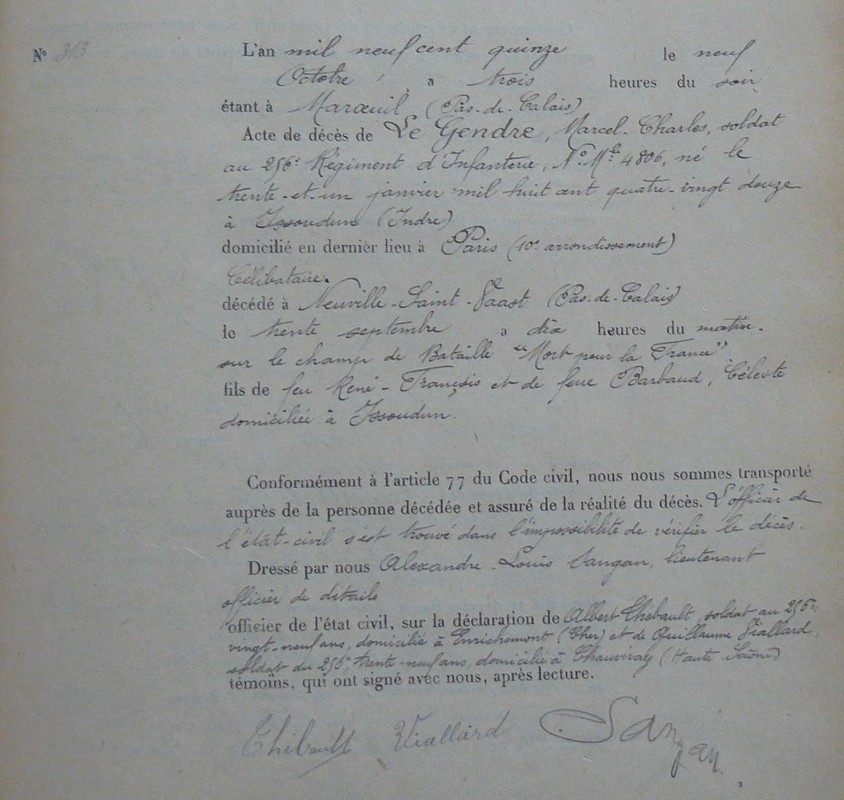 N° 313
L'an mil neuf cent quinze le neuf
Octobre, a trois heures du soir
étant à Marœuil (Pas-de-Calais)
Acte de décès de Le Gendre, Marcel-Charles, soldat
au 256e Régiment d'Infanterie, No Mle 4806, né le
trente-et-un janvier mil huit cent quatre-vingt douze
à Issoudun (Indre)
domicilié en dernier lieu à Paris (10e arrondissement)
Célibataire.
décédé à Neuville-Saint-Vaast (Pas-de-Calais)
le trente septembre a dix heures du matin.
sur le champ de Bataille "Mort pour la France"
fils de feu René-François et de feue Barbaud, Céleste
domiciliée à Issoudun.
Conformément à l'article 77 du Code civil, nous nous sommes transporté
auprès de la personne décédée et assuré de la réalité du décès. L'officier de
l'état-civil s'est trouvé dans l'impossibilité de vérifier le décès.
Dressé par nous Alexandre-Louis Sangan, lieutenant
officier de détails
officier de l'état civil, sur la déclaration de Albert Thébault, soldat au 256e,
vingt-neuf ans, domicilié à Henrichemont (Cher) et de Guillaume Viallard,
soldat du 256e, trente-neuf ans, domicilié à Chauvirey (Haute-Saône)
témoins, qui ont signé avec nous, après lecture.
Thébault Viallard Sangan